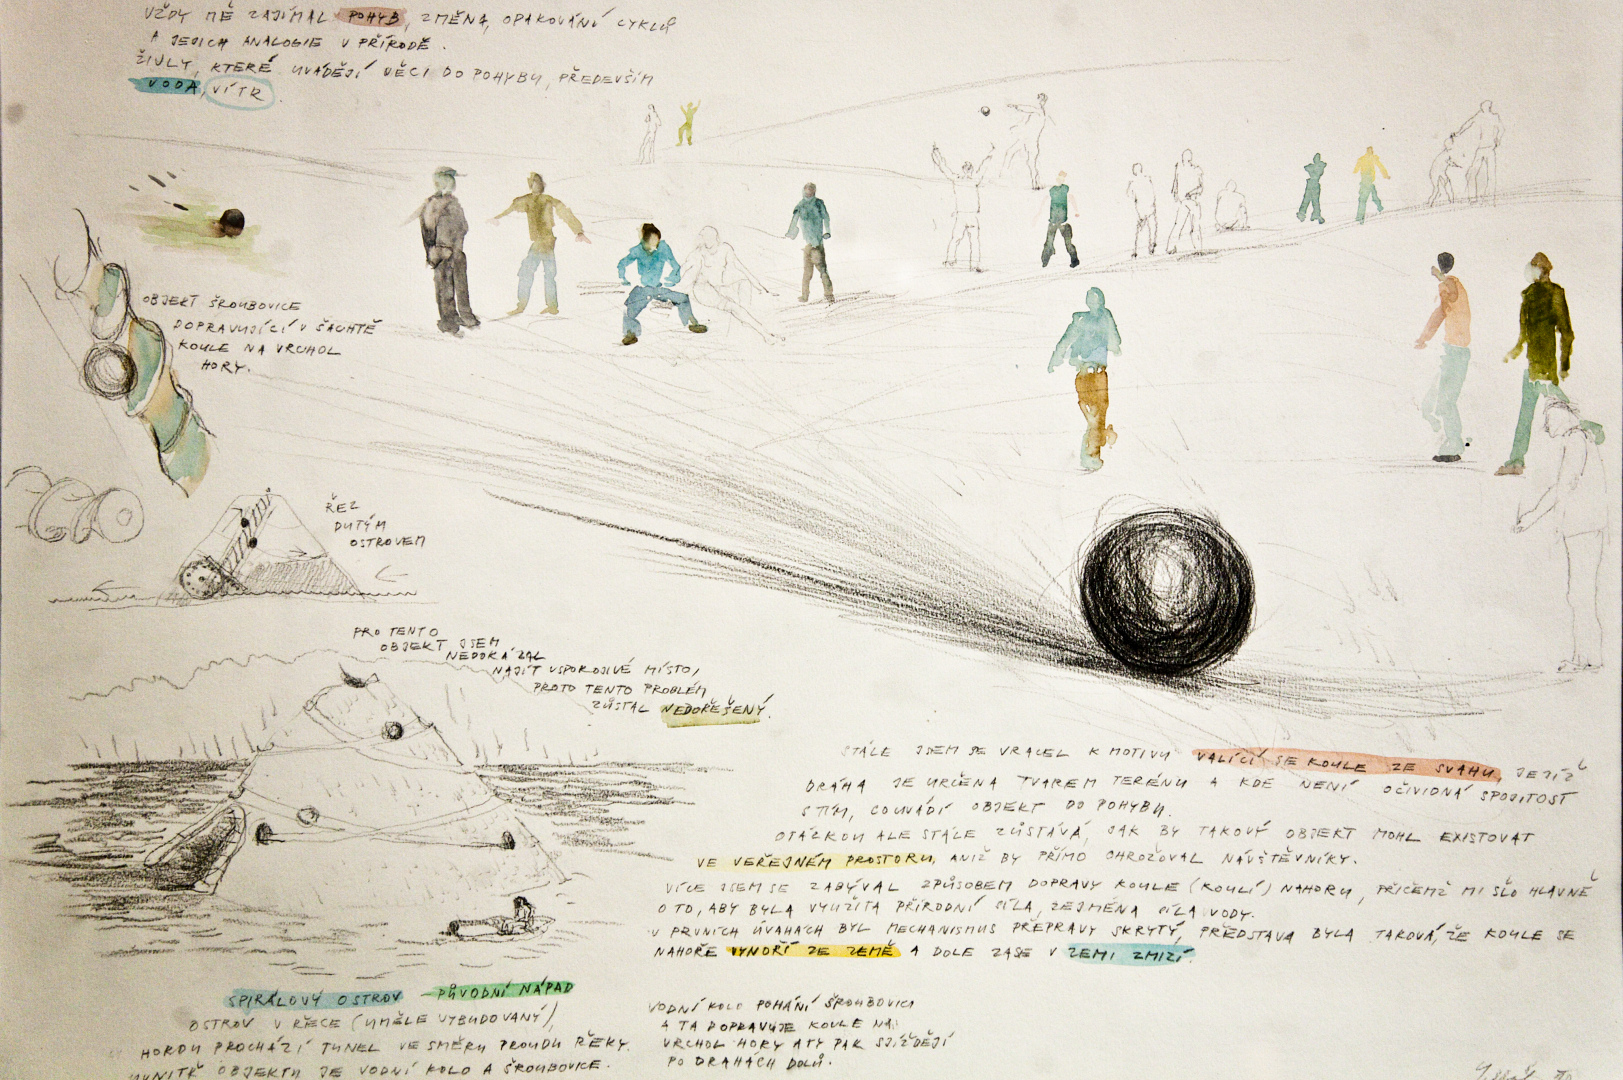 VŽDY MĚ ZAJÍMAL POHYB, ZMĚNA, OPAKOVÁNÍ CYKLŮ
A JEJICH ANALOGIE V PŘÍRODĚ.
ŽIVLY, KTERÉ UVÁDĚJÍ VĚCI DO POHYBU, PŘEDEVŠÍM
VODA, VÍTR.
OBJEKT ŠROUBOVICE
DOPRAVUJÍCÍ V ŠACHTĚ
KOULE NA VRCHOL
HORY.
ŘEZ
DUTÝM
OSTROVEM
PRO TENTO
OBJEKT JSEM
NEDOKÁZAL
NAJÍT USPOKOJIVÉ MÍSTO,
PROTO TENTO PROBLÉM
ZŮSTAL NEDOŘEŠENÝ.
STÁLE JSEM SE VRACEL K MOTIVU VALÍCÍ SE KOULE ZE SVAHU, JEJÍŽ
DRÁHA JE URČENA TVAREM TERÉNU A KDE NENÍ OČIVIDNÁ SPOJITOST
S TÍM, CO UVÁDÍ OBJEKT DO POHYBU.
OTÁZKOU ALE STÁLE ZŮSTÁVÁ, JAK BY TAKOVÝ OBJEKT MOHL EXISTOVAT
VE VEŘEJNÉM PROSTORU, ANIŽ BY PŘÍMO OHROŽOVAL NÁVŠTĚVNÍKY.
VÍCE JSEM SE ZABÝVAL ZPŮSOBEM DOPRAVY KOULE (KOULÍ) NAHORU, PŘIČEMŽ MI ŠLO HLAVNĚ
O TO, ABY BYLA VYUŽITA PŘÍRODNÍ SÍLA, ZEJMÉNA SÍLA VODY.
V PRVNÍCH ÚVAHÁCH BYL MECHANISMUS PŘEPRAVY SKRYTÝ, PŘEDSTAVA BYLA TAKOVÁ, ŽE KOULE SE
NAHOŘE VYNOŘÍ ZE ZEMĚ A DOLE ZASE V ZEMI ZMIZÍ.
SPIRÁLOVÝ OSTROV - PŮVODNÍ NÁPAD
OSTROV V ŘECE (UMĚLE VYBUDOVANÝ),
HOROU PROCHÁZÍ TUNEL VE SMĚRU PROUDU ŘEKY.
UVNITŘ OBJEKTU JE VODNÍ KOLO A ŠROUBOVICE.
VODNÍ KOLO POHÁNÍ ŠROUBOVICI
A TA DOPRAVUJE KOULE NA
VRCHOL HORY ATY PAK SJÍŽDĚJÍ
PO DRAHÁCH DOLŮ.